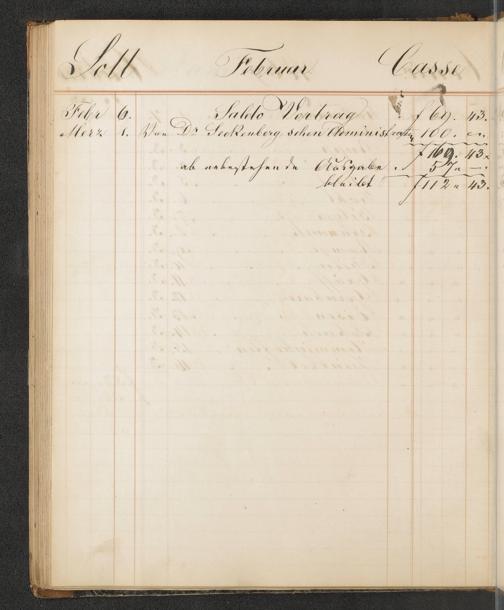 Soll Februar Casse
Febr 6. Saldo Vortrag f 69. 43.
Merz 1. Von Dr Senkenberg'schen Administration " 100. "
f 169. 43
ab nebestehende Ausgabe " 57 " —
bleibt f 112 " 43.